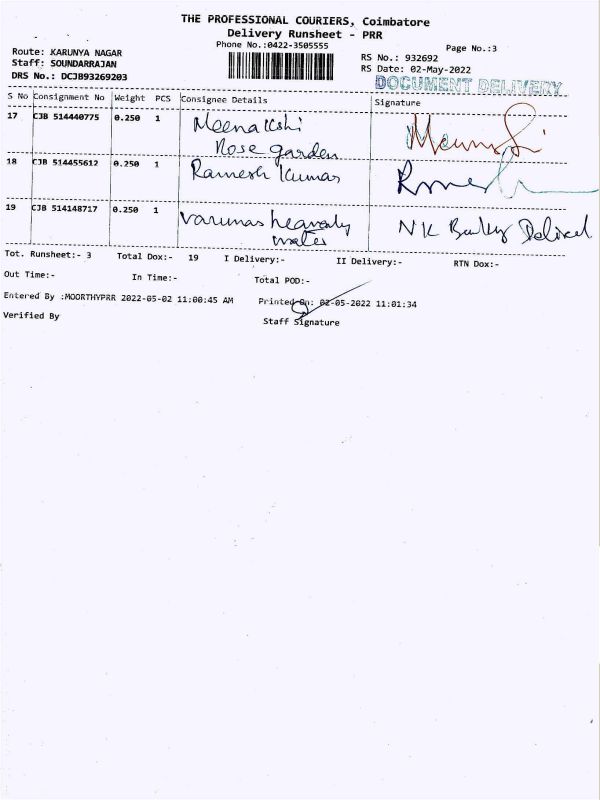 THE PROFESSIONAL COURIERS, Coimbatore
Delivery Runsheet - PRR
Phone No.:0422-3505555
Page No.:3
Route: KARUNYA NAGAR
Staff: SOUNDARRAJAN
DRS No.: DCJB93269203
RS No.: 932692
RS Date: 02-May-2022
DOCUMENT DELIVERY
S No Consignment No Weight PCS Consignee Details Signature
17 CJB 514440775 0.250 1 Meenakshi
Rose garden
18 CJB 514455612 0.250 1 Ramesh Kumar
19 CJB 514148717 0.250 1 Varunas heavenly
water
NK
Tot. Runsheet:- 3 Total Dox:- 19 I Delivery:- II Delivery:- RTN Dox:-
Out Time:- In Time:- Total POD:-
Entered By :MOORTHYPRR 2022-05-02 11:00:45 AM Printed On: 02-05-2022 11:01:34
Verified By Staff Signature